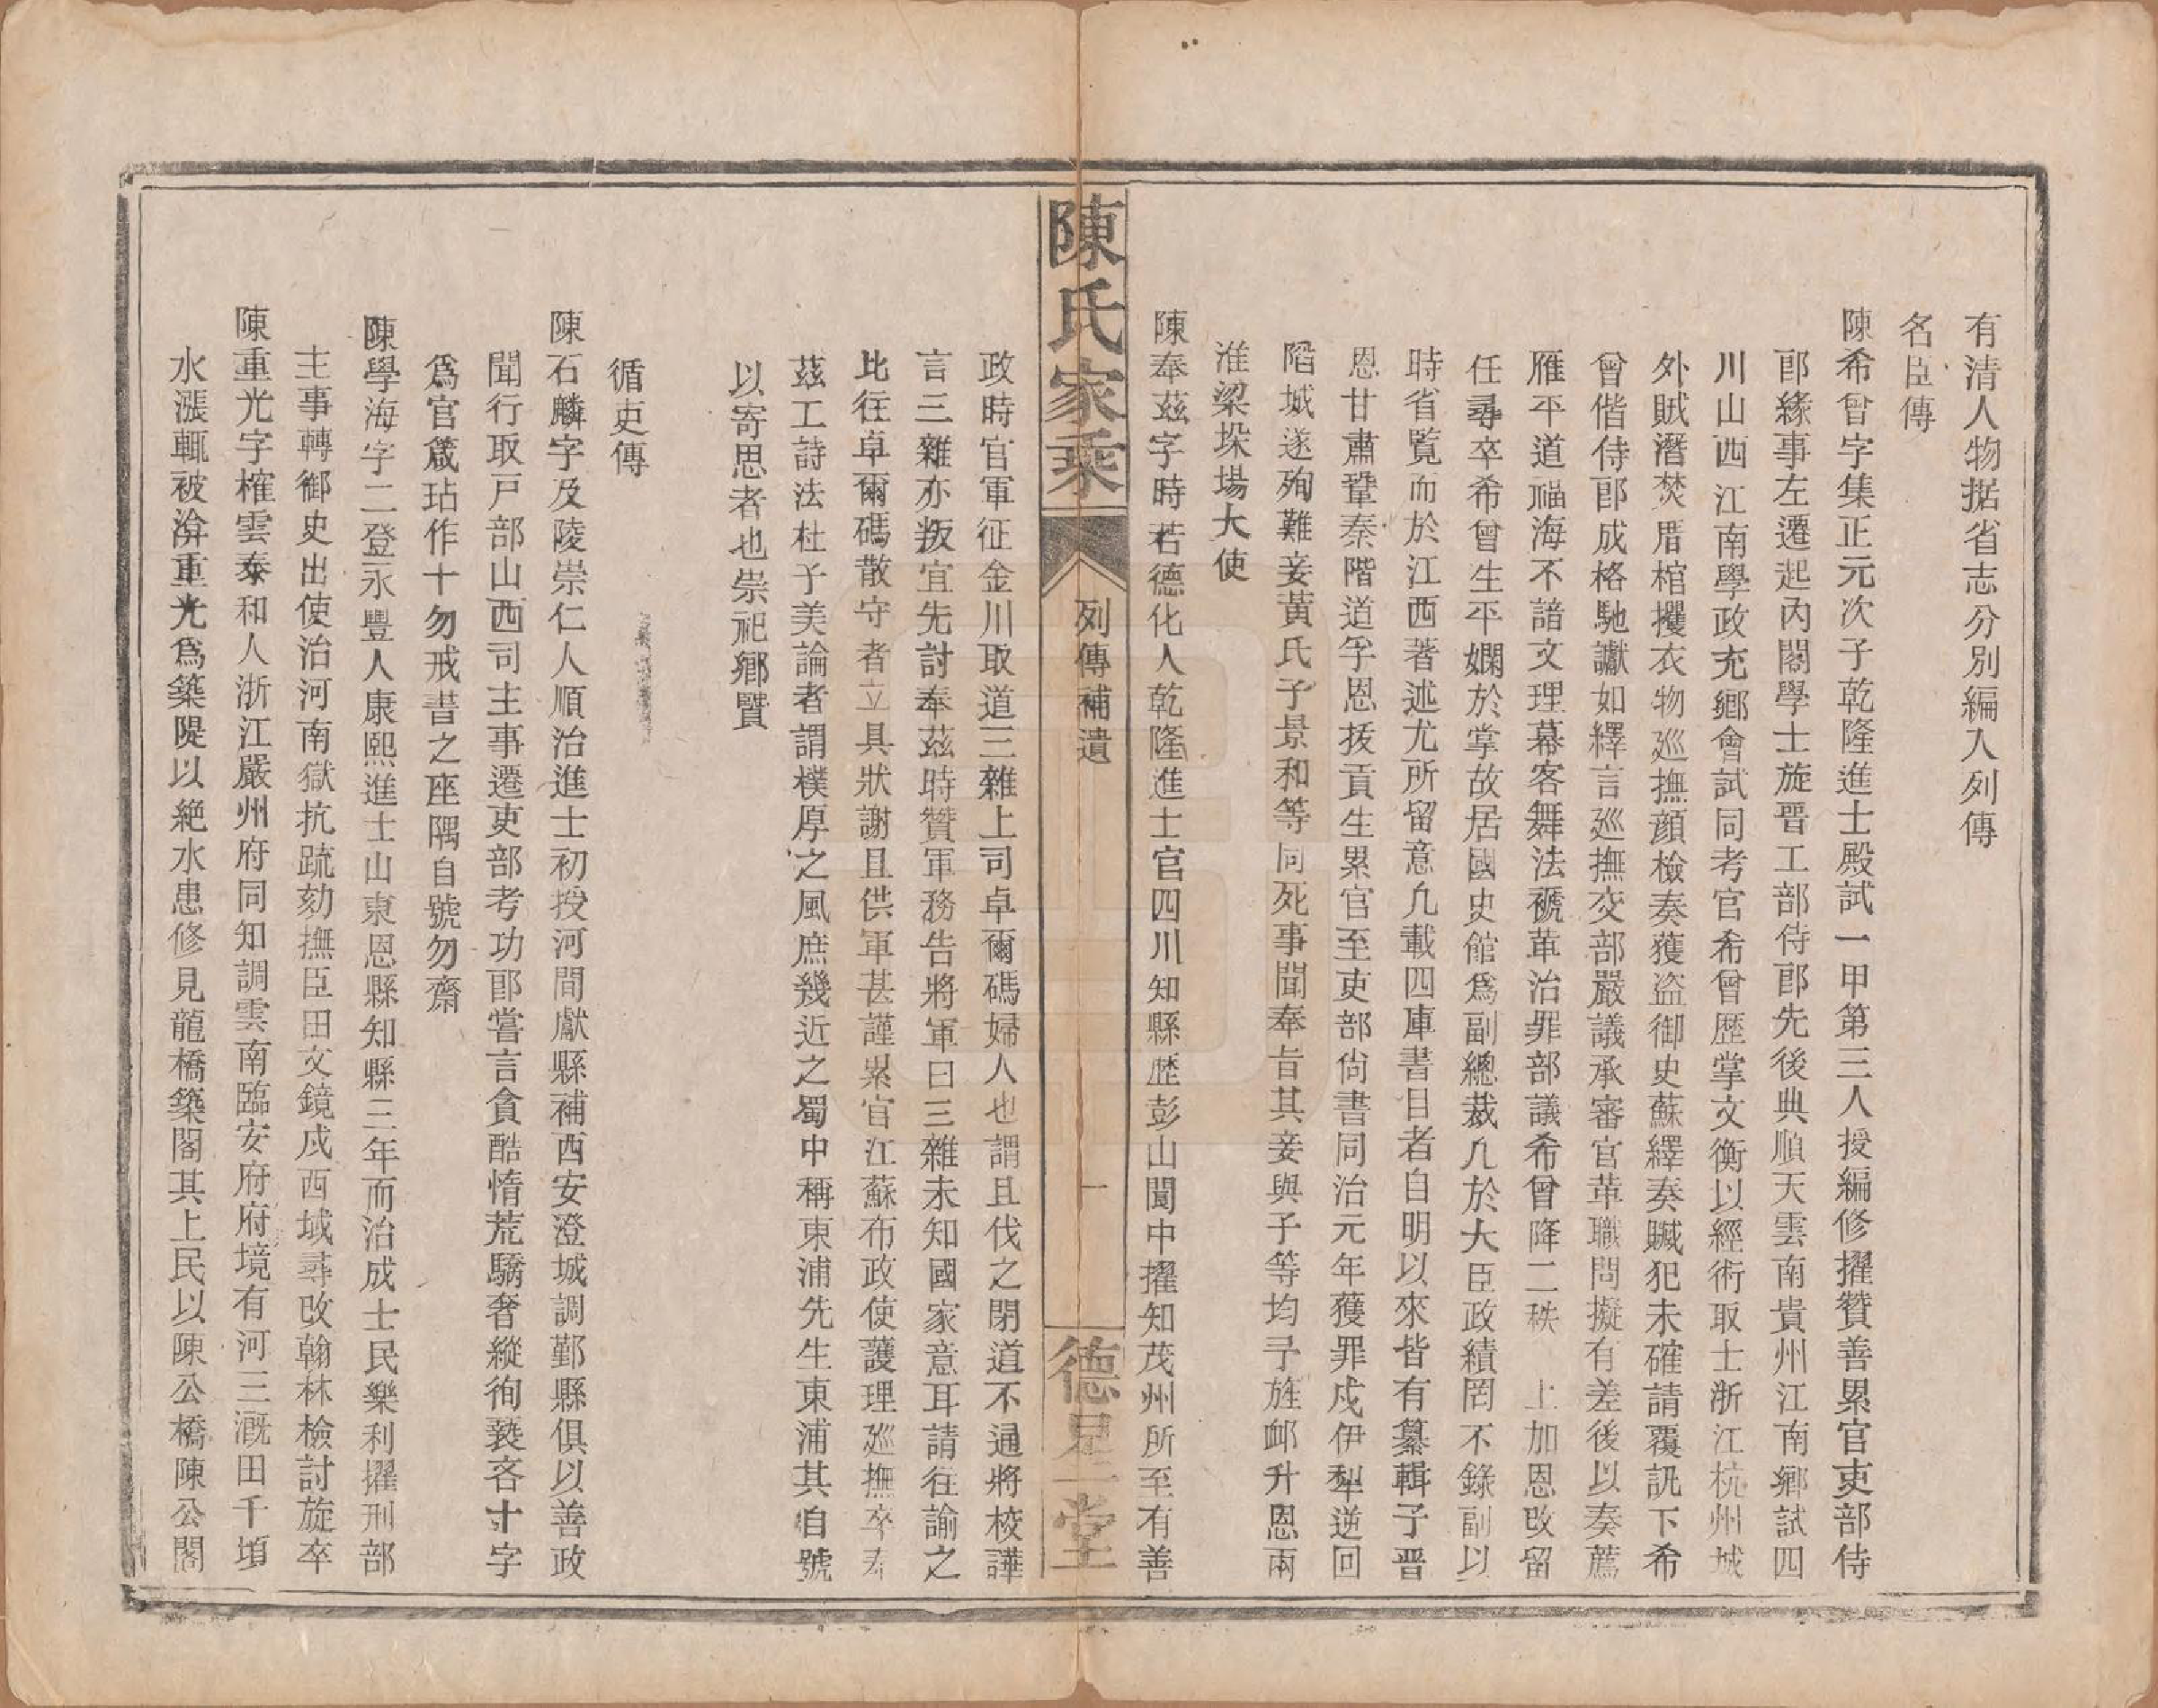 有清人物据省志分別編入列傳
名臣傳
陳希曾字集正元次子乾隆進士殿試一甲第三人授編修擢贊善累官吏部侍
郎緣事左遷起內閣學士旋晋工部侍郎先後典順天雲南貴州江南鄉試四
川山西江南學政充鄉會試同考官希曾歷掌文衡以經術取士浙江杭州城
外賊潛焚厝棺攫衣物巡撫顔檢奏獲盜御史蘇繹奏贓犯未確請覆訊下希
曾偕侍郎成格馳讞如繹言巡撫交部嚴議承審官革職問擬有差後以奏薦
雁平道福海不諳文理幕客舞法褫革治罪部議希曾降二秩　上加恩改留
任尋卒希曾生平嫻於掌故居國史館爲副總裁凡於大臣政績罔不錄副以
時省覧而於江西著述尤所留意凡載四庫書目者自明以來皆有纂輯子晋
恩甘肅鞏秦階道孚恩拔貢生累官至吏部尙書同治元年獲罪戍伊犁逆回
陷城遂殉難妾黃氏子景和等同死事聞奉旨其妾與子等均予旌卹升恩兩
淮梁垜場大使
陳奉茲字時若德化人乾隆進士官四川知縣歷彭山閬中擢知茂州所至有善
陳氏家乘
列傳補遺
一
德星堂
政時官軍征金川取道三雜上司卓爾碼婦人也謂且伐之閉道不通將校譁
言三雜亦叛宜先討奉茲時贊軍務告將軍曰三雜未知國家意耳請往諭之
比往卓爾碼散守者立具狀謝且供軍甚謹累官江蘇布政使護理巡撫卒奉
茲工詩法杜子美論者謂樸厚之風庶幾近之蜀中稱東浦先生東浦其自號
以寄思者也崇祀鄉賢
循吏傳
陳石麟字及陵崇仁人順治進士初授河間獻縣補西安澄城調鄞縣俱以善政
聞行取戸部山西司主事遷吏部考功郎嘗言貪酷惰荒驕奢縱徇褻吝十字
爲官箴玷作十勿戒書之座隅自號勿齋
陳學海字二登永豐人康熙進士山東恩縣知縣三年而治成士民樂利擢刑部
主事轉御史出使治河南獄抗疏劾撫臣田文鏡戍西域尋改翰林檢討旋卒
陳重光字榷雲泰和人浙江嚴州府同知調雲南臨安府府境有河三漑田千頃
水漲輒被渰重光爲築隄以絶水患修見龍橋築閣其上民以陳公橋陳公閣